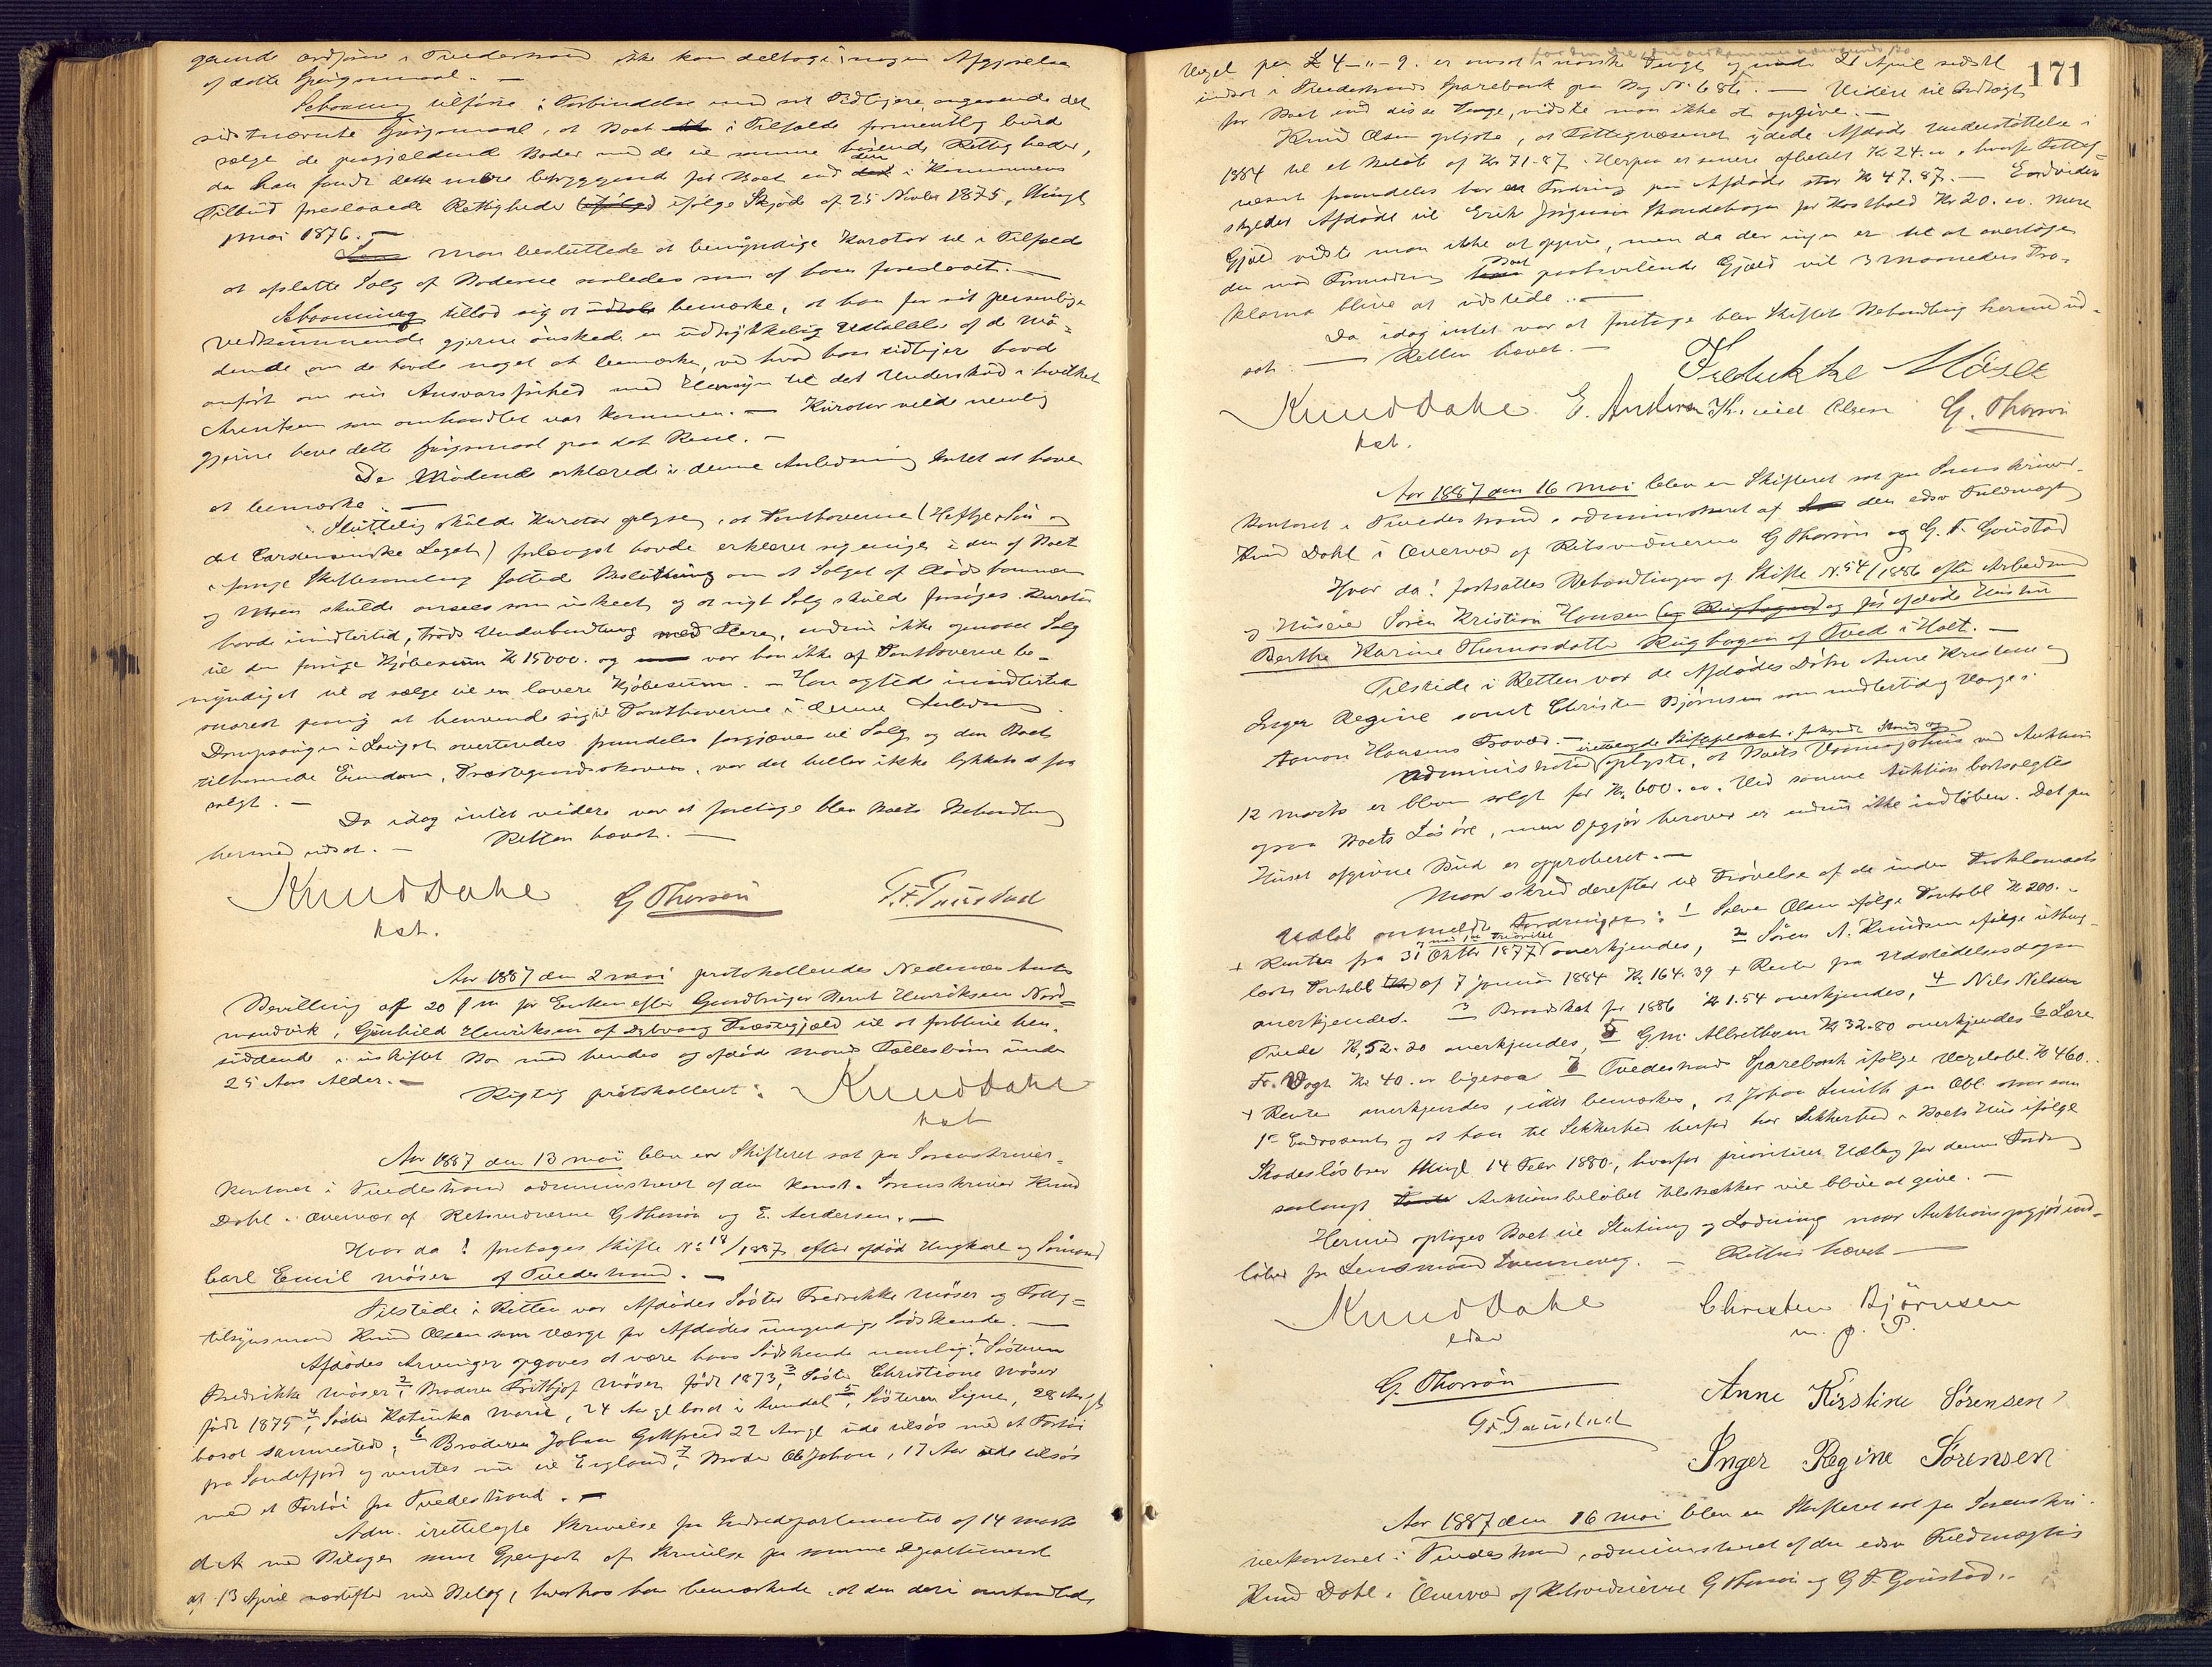 gaende Ordfører i Tvedestrand ikke kan deltage i nogen Afgjørelse
af dette Spørgsmaal. —
Schooning tilføiede i Forbindelse med sit Tidligere angaaende det
sidstnævnte Spørgsmaal, at Boet i Tilfælde formentlig burde
sælge de paagjældende Boder med de til samme hørende Rettigheder,
da han fandt dette mere betryggende for Boet end den i Kommunens
Tilbud foreslaaede Rettigheder ifølge Skjøde af 25 Novbr 1875, thingl
mai 1876. —
man besluttede at bemyndige Kurator til i Tilfælde
at afslutte Salg af Boderne saaledes som af ham foreslaaet. —
Schooning tillod sig at bemærke, at han for sit personlige
Vedkommende gjerne ønskede en udtrykkelig Udtalelse af de Mø-
dende om de havde noget at bemærke, ved hvad han tidligere havde
anført om sin Ansvarsfrihed med Hensyn til det Underskud i hvilket
Arentsen som omhandlet var kommen. — Kurator vilde nemlig
gjerne have dette Spørgsmaal paa det Rene. —
De Mødende erklærede i denne Anledning Intet at have
at bemærke. —
Sluttelig skulde Kurator oplyse, at Panthaverne (Heftye & Søn og
det Carstensenske Legat) forlængst havde erklæret sig enige i den af Boet
i forrige Skiftesamling fattede Beslutning om at Salget af
og skulde ansees som uskeet, og at nyt Salg skulde forsøges. Kurator
havde imidlertid, trods Underhandling med Flere, endnu ikke opnaaet Salg
til den forrige Kjøbesum Kr 15000. og var han ikke af Panthaverne be-
myndiget til at sælge til en lavere Kjøbesum. — Han agtede imidlertid
snarest mulig at henvende sig til Panthaverne i denne Anledning.
Dampsagen i Songe overtoges fremdeles forgjæves til Salg og den Boet
tilhørende Eiendom, var det heller ikke lykkets at faa
solgt. —
Da idag intet videre var at foretage blev Boets Behandling
hermed udsat. — Retten hævet. —
Knud Dahl G Thorsøn G. F. Gaustad
kst.
Aar 1887 den 2 mai protokolleredes Nedenes Amts
Bevilling af 20 f m for Enken efter Gaardbruger Bernt Henriksen Nord-
mandvik, Gunhild Henriksen af Dybvaag Præstegjæld til at forblive hen-
siddende i uskiftet Bo med hendes og afdøde Mands Fællesbørn under
25 Aars Alder. —
Rigtig protokolleret: Knud Dahl
kst
Aar 1887 den 13 mai blev en Skifteret sat paa Sorenskriver-
kontoret i Tvedestrand administreret af den konst. Sorenskriver Knud
Dahl i Overvær af Retsvidnerne G Thorsøn og E. Andersen. —
Hvor da! foretages Skifte No 18/1887 efter afdød Ungkarl og Sømand
Carl Emil Møser af Tvedestrand. —
Tilstede i Retten var Afdødes Søster Fredrikke Møser og Fattig-
tilsynsmand Knud Olsen som Værge for Afdødes umyndige Sødskende. —
Afdødes Arvinger opgaves at være hans Sødskende nemlig: 1 Søsteren
Fredrikke Møser, 2 Broderen Fritthjof Møser født 1873, 3 Søster Christiane Møser
født 1875, 4 Søster Katinka Marie, 24 Aar gl bosat i Arendal, 5 Søsteren Signe, 28 Aar gl
bosat sammesteds, 6 Broderen Johan Gottfried 22 Aar gl ude tilsøs med et Fartøi
fra Sandefjord og ventes nu til England, 7 Broder Ole Johan, 17 Aar ude tilsøs
med et Fartøi fra Tvedestrand. —
Adm. irettelagte Skrivelse fra Indredepartementet af 14 marts
d.A. med Bilager samt Gjenpart af Skrivelse fra samme Departement
af 13 April næstefter med Bilag, hvorhos han bemærkede, at den deri omhandlede
171
Vexel paa £ 4-"-9. er omsat i norske Penge og 21 April sidstl
indsat i Tvedestrands Sparebank paa Bog No 686. — Videre til Indtægt
for Boet end disse Penge, vidste man ikke at opgive. —
Knud Olsen oplyste, at Fattigvæsenet ydede Afdøde Understøttelse i
1884 til et Beløb af Kr 71.87. Herpaa er senere afbetalt Kr 24.00, hvorfor Fattig-
væsenet fremdeles har en Fordring paa Afdøde stor Kr 47.87. — Endvidere
skylder Afdøde til Erik Jørgensen for Kosthold Kr 20.00. Mere
Gjæld vidste man ikke at opgive, men da der ingen er til at overtage
den med Formuen Boet paahvilende Gjæld vil 3 maaneders Pro-
klama blive at udstede. —
Da idag intet var at foretage blev Skiftets Behandling hermed ud-
sat. — Retten hævet. —
Fredrikke Møser
Knud Dahl E. Andersen Knud Olsen G. Thorsøn
kst.
Aar 1887 den 16 mai blev en Skifteret sat paa Sorenskriver-
kontoret i Tvedestrand, administreret af den edsv Fuldmægtig
Knud Dahl i Overvær af Retsvidnerne G Thorsøn og G. F. Gaustad
Hvor da! fortsattes Behandlingen af Skifte No 54/1886 efter Arbeidsmd
og Huseier Søren Kristian Hansen og før afdøde Hustru
Berthe Karine Thomasdatter Rughagen af Tved i Holt. —
Tilstede i Retten var de Afdødes Døtre Anne Kristine og
Inger Regine samt Christen Bjørnsen som midlertidig Værge i
Aanon Hansens Fravær. —
Administrator oplyste, at Boets Vaaningshus ved Auktion
12 marts er bleven solgt for Kr. 600.00. Ved samme Auktion bortsolgtes
ogsaa Boets Løsøre, men Opgjør herover er endnu ikke indløben. Det paa
Huset afgivne Bud er approberet. —
Man skred derefter til Prøvelse af de inden Proklamaets
Udløb anmeldte Fordringer: 1 Salve Olsen ifølge Pantobl Kr 200.
+ Renter fra 31 Oktbr 1877 med 1ste Prioritet anerkjendes, 2 Søren A. Knudsen ifølge uthing-
læst Pantobl af 7 Januar 1884 Kr. 164.39 + Renter fra Udstedelsesdagen
anerkjendes. 3 Brandskat for 1886 Kr 1.54 anerkjendes, 4 Nils Nilsen
Tvede Kr. 52.20 anerkjendes, 5 G.M. Albrethsen Kr 32.80 anerkjendes 6 Lære
Fr. Vogt Kr 40.00 ligesaa 7 Tvedestrands Sparebank ifølge Vexelobl. Kr 460.
+ Renter anerkjendes, idet bemærkes, at Johan Smith paa Obl. staar som
1ste Endossent og at han til Sikkerhed herfor har Sikkerhed i Boets Hus ifølge
Skadesløsbrev thingl 14 Febr 1880, hvorfor prioriteret Udlæg for denne Fordring
saalangt Auktionsbeløbet tilstrækker vil blive at give. —
Hermed optages Boet til Slutning og Lodning naar Auktionsopgjør ind-
løber fra Lensmand Svenneveg. — Retten hævet —
Knud Dahl Christen Bjørnsen
edsv m. p. P.
G. Thorsøn Anne Kirstine Sørensen
G. F. Gaustad
Inger Regine Sørensen
Aar 1887 den 16 mai blev en Skifteret sat paa Sorenskri-
verkontoret i Tvedestrand, administreret af den edsv Fuldmægtig
Knud Dahl i Overvær af Retsvidnerne G Thorsøn og G. F. Gaustad. —